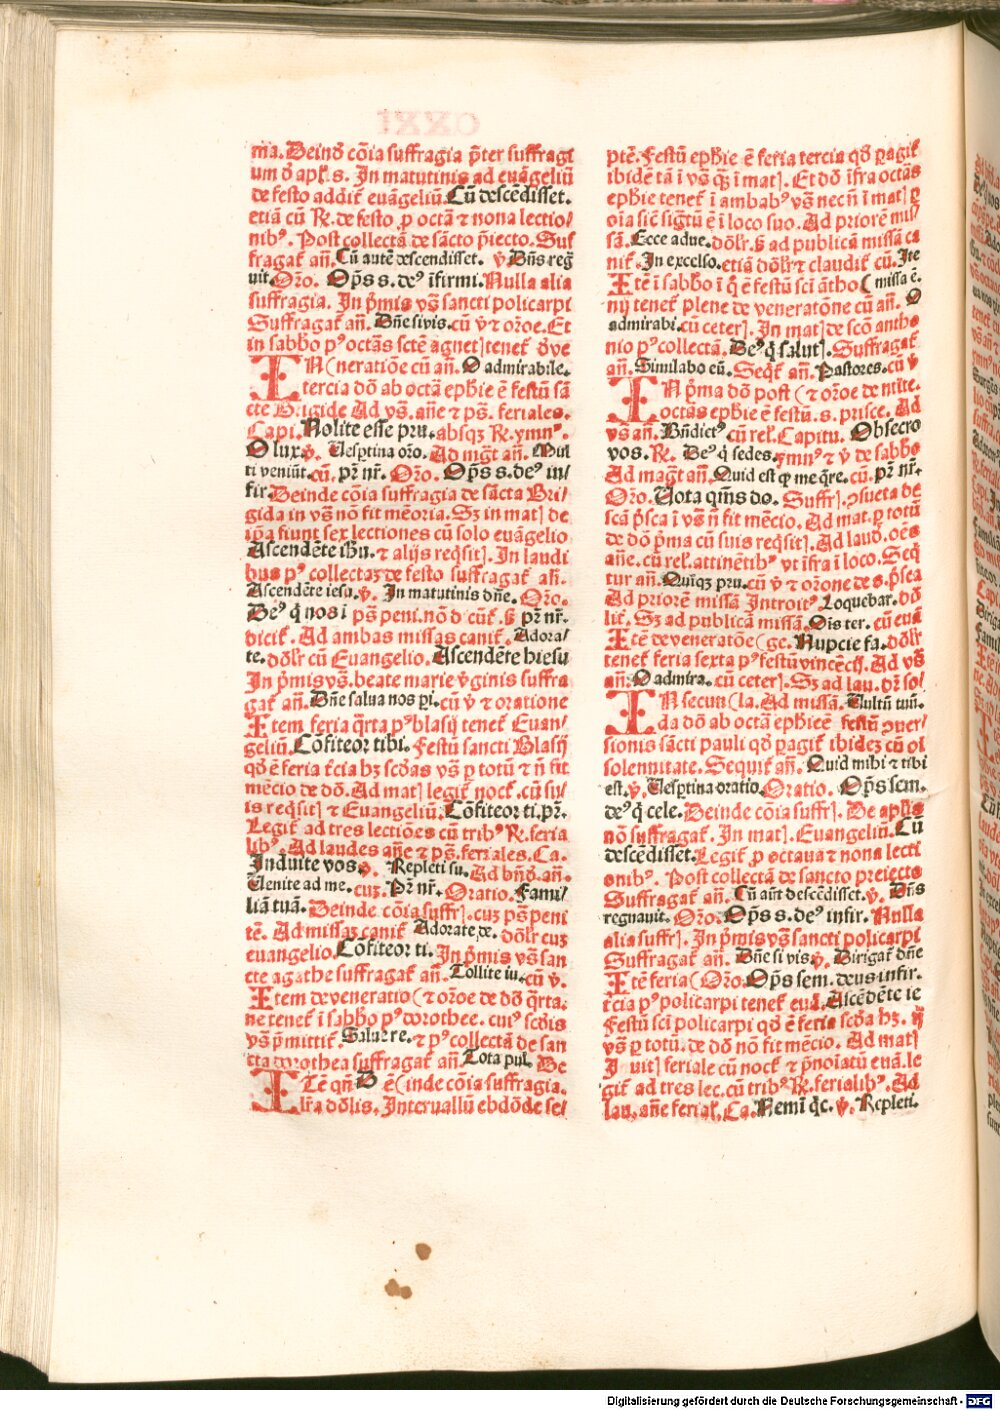 ma. Deinđ cōia suffragia p̄ter suffragi
um đ apłis. In matutinis ad euāgeliū
de festo addit̄ euāgeliū. Cū descēdisset.
etiā cū R̷. de festo. ꝑ octā ⁊ nona lectio⸗
nibꝰ. Post collectā de sācto p̄iecto. Suf
fragat̄ añ. Cū autē descendisset. ℣ Dn̄s reg̃
uit. Oro. Opn̄s s. deꝰ īfirmi. Nulla alia
suffragia. In p̄mis vs̄ sancti policarpi
Suffragat̄ añ. Dn̄e si vis. cū ℣ ⁊ oroe. Et
in sabbō pꝰ octās scte agnetis tenet̄ đ ve
IN (neratiōe cū añ. O admirabile.
tercia dō ab octā ephīe ē festū sā
cte Brigide Ad vs̄. añe ⁊ ps̄. feriales.
Capi. Nolite esse pru. absqꝫ R̷. ymnꝰ.
O lux. ℣. Uesptina oro. Ad mgt̄ añ. Mul
ti veniūt. cū. pr̄ nr̄. Oro. Opn̄s s. deꝰ in⸗
fir. Deinde cōia suffragia de sācta Bri⸗
gida in vs̄ nō fit mēoria. Sꝫ in mat̄ de
ip̄a fiunt sex lectiones cū solo euāgelio
Ascendēte ihū. ⁊ alijs reqsit̄. In laudi
bus pꝰ collectaꝫ de festo suffragat̄ añ.
Ascendēte iesu. ℣. In matutinis dn̄e. Oro.
Deꝰ q̄ nos ī ps̄ peni. nō đ cūt̄. ꝭ pr̄ nr̄.
dicit̄. Ad ambas missas canit̄. Adora⸗
te. dōlr̄ cū Euangelio. Ascendēte hiesu
In p̄mis vs̄. beate marie v̄ginis suffra
gat̄ añ. Dn̄e salua nos pi. cū ℣ ⁊ oratione
Item feria q̄rta pꝰ blasij tenet̄ Euan⸗
geliū. Cōfiteor tibi. Festū sancti Blasij
qđ ē feria t̄cia hꝫ scdas vs̄ ꝑ totū ⁊ n̄ fit
mēcio de dō. Ad mat̄ legit̄ noct̄. cū su⸗
is reqsit̄ ⁊ Euangeliū. Cōfiteor ti. pr̄.
Legit̄ ad tres lectiōes cū tribꝰ R̷. feria
libꝰ. Ad laudes añe ⁊ ps̄. feriales. Ca.
Induite vos. ℣. Repleti su. Ad bn̄đ. añ.
Uenite ad me. cuꝫ. Pr̄ nr̄. Oratio. Fami⸗
liā tuā. Deinde cōia suffr̄. cuꝫ ps̄ peni
tē. Ad missaꝫ canit̄ Adorate ⁊c. dōlr̄ cuꝫ
euangelio. Cōfiteor ti. In p̄mis vs̄ san
cte agathe suffragat̄ añ. Tollite iu. cū ℣.
Item de veneratio (⁊ oroe de dō q̄rta.
ne tenet̄ ī sabbō pꝰ dorothee. cuiꝰ scđis
vs̄ p̄mittit̄ Salue re. ⁊ pꝰ collectā de san
cta dorothea suffragat̄ añ. Tota pul. De
ITē qn̄ D ē (inde cōia suffragia.
lr̄a dōlis. Interuallū ebdōde sei⸗
ptē. Festū ephīe ē feria tercia qđ pagit̄
ibidē tā ī vs̄ qꝫ ī mat̄. Et dō īfra octās
ephīe tenet̄ ī ambabꝰ vs̄ necn̄ ī mat̄ ꝑ
oīa sicut sigtū ē ī loco suo. Ad priorē mis⸗
sā. Ecce adue. dōlr̄. ꝭ ad publicā missā ca
nit̄. In excelso. etiā dōlr̄ ⁊ claudit̄ cū. Ite
Itē ī sabbō ī q̄ ē festū sci ātho ( missa ē.
nij tenet̄ plene de veneratōne cū añ. O
admirabi. cū ceteris. In mat̄ de scō antho
nio pꝰ collectā. Deꝰ q̄ salut̄. Suffragat̄
añ. Similabo eū. Seqt̄ añ. Pastores. cū ℣
IN p̄ma dō post (⁊ oroe de nitte.
octas ephīe ē festū. s. prisce. Ad
vs̄ añ. Bn̄dictꝰ cū reł. Capitu. Obsecro
vos. R̷. Deꝰ q̄ sedes. ymnꝰ ⁊ ℣ de sabbō
Ad magt̄ añ. Quid est ꝙ me qre. cū. pr̄ nr̄.
Oro. Uota qm̄s do. Suffr̄. ꝯsueta de
scā p̄sca ī vs̄ n̄ fit mēcio. Ad mat. ꝑ totū
de dō p̄ma cū suis reqsit̄. Ad lauđ. oēs
añe. cū reł. attinētibꝰ vt īfra ī loco. Seq̄
tur añ. Quīqꝫ pru. cū ℣ ⁊ orōne de s. p̄sca
Ad priorē missā Introitꝰ. Loquebar. dō
lr̄. Sꝫ ad publicā missā. Oīs ter. cū euā
Itē de veneratōe (ge. Nupcie fa. dōlr̄
tenet̄ feria sexta pꝰ festū vincēcij. Ad vs̄
añ. O admira. cū ceteris. Sꝫ ad lau. dr̄ so⸗
IN secun (la. Ad missā. Uultū tuū.
da dō ab octā ephīe ē festū ꝯuer⸗
sionis sācti pauli qđ pagit̄ ibideꝫ cū ol
solennitate. Sequit̄ añ. Quid mihi ⁊ tibi
est. ℣. Uesptina oratio. Oratio. Opn̄s sem.
deꝰ q̄ cele. Deinde cōia suffr̄. De apłis
nō suffragat̄. In mat̄. Euangeliū. Cū
descēdisset. Legit̄ ꝑ octaua ⁊ nona lecti
onibꝰ. Post collectā de sancto preiecto
Suffragat̄ añ. Cū aut̄ descēdisset. ℣. Dn̄s
regnauit. Oro. Opn̄s s. deꝰ infir. Nulla
alia suffr̄. In p̄mis vs̄ sancti policarpi
Suffragat̄ añ. Dn̄e si vis. ℣. Dirigat̄ dn̄e
Itē feria (Oro. Opn̄s sem. deus infir.
t̄cia pꝰ policarpi tenet̄ eu. Ascēdēte ie
Festū sci policarpi qđ ē feria scđa hꝫ. ij
vs̄ ꝑ totū. de dō nō fit mēcio. Ad mat̄
Inuit̄ feriale cū noct̄ ⁊ p̄noīatū euā. le
git̄ ad tres lec. cū tribꝰ R̷. ferialibꝰ. Ad
lau. añe ferial. Ca. Nemī q̄c. ℣. Repleti.
Digitalisierung gefördert durch die Deutsche Forschungsgemeinschaft - DFG